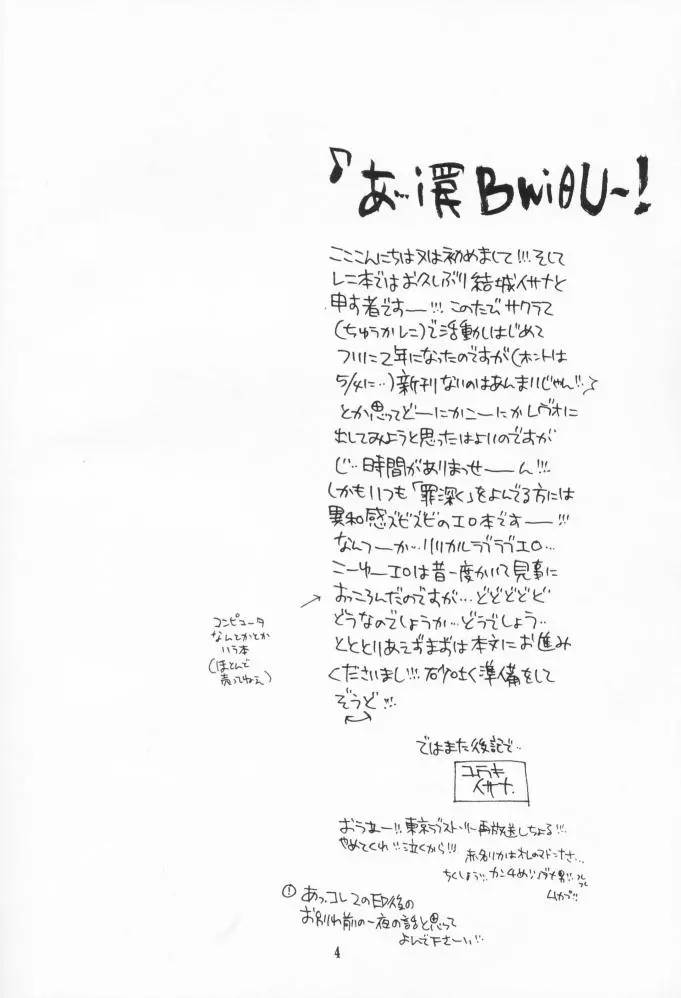 『あ…i罠BWiθU〜!
こここんにちは又は初めまして!!!そして
レニ本ではお久しぶり結城イサナと
申す者ですー!!!このたびサクラて
(ちゅうかレニ)で活動しはじめて
ついに2年になったのですが(ホントは
5/4に…)新刊ないのはあんまいじゃん!!
とか思ってどーにかこーにかレヴォに
出してみようと思ったはよいのですが
じ…時間がありまっせーーん!!!
しかもいつも「罪深く」をよんでる方には
異和感ズビズビのエロ本ですー!!!
なんつーか…リリカルラブラブエロ…
こーゆーエロは昔一度かいて見事に
おっころんだのですが…どどどどど
どうなのでしょうか…どうでしょう…
とととりあえずまずは本文にお進み
くださいまし!!!砂吐く準備をして
ぞうど!!!
コンピュータ
なんとかとか
いう本
(ほとんど
売ってねえ)
ではまた後記で…
ユウキ
イサナ
おうおー!!東京ラブストーリー再放送しちょる!!!
やめてくれ!!泣くから!!!
赤名リカはオレのマドンナさ…
ちくしょう!!カン4め!!
ムカプ!!
! あっコレ2の印後の
お別れ前の一夜の話と思って
よんで下さーい!!
4